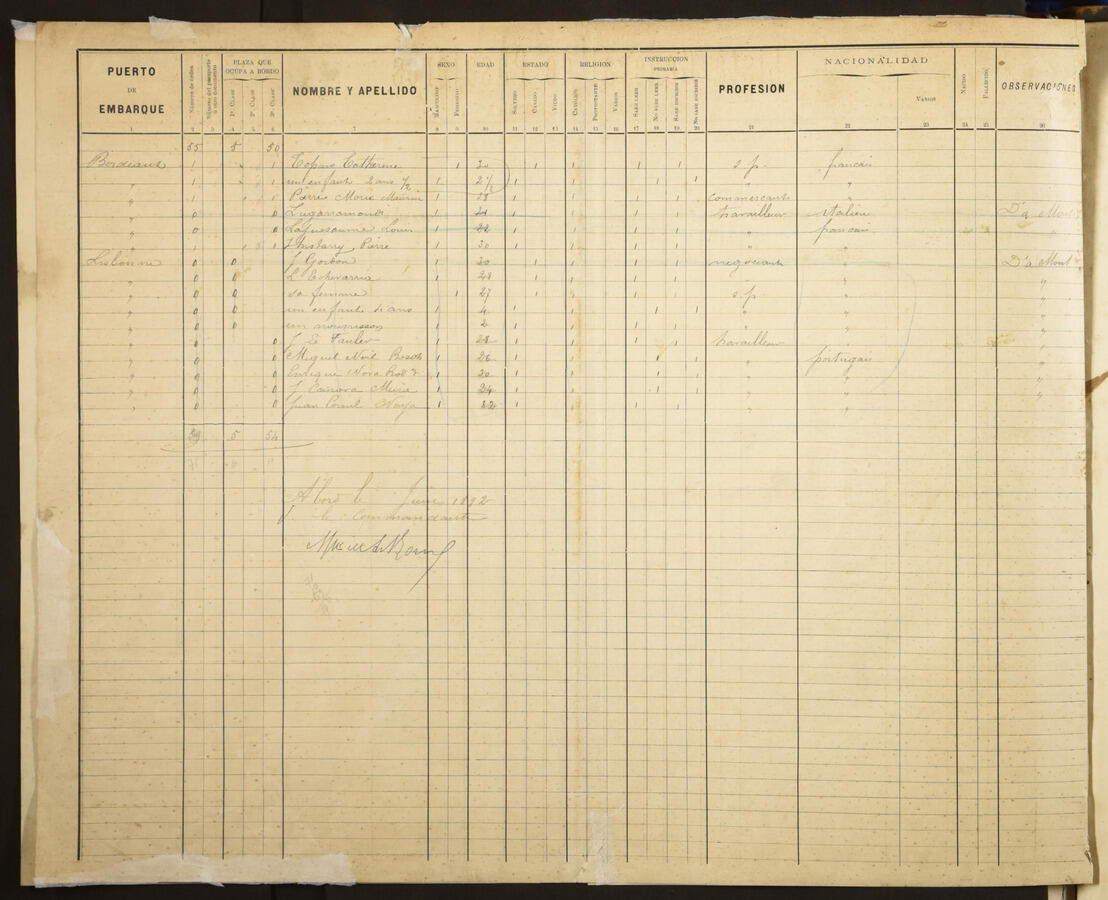 PUERTO DE EMBARQUE
Números de orden
Número del pasaporte ú otro documento
PLAZA QUE OCUPA A BORDO
1ª CLASE 2ª CLASE 3ª CLASE
NOMBRE Y APELLIDO
SEXO
MASCULINO FEMENINO
EDAD
ESTADO
SOLTERO CASADO VIUDO
RELIGION
CATÓLICO PROTESTANTE VARIOS
INSTRUCCION PRIMARIA
SABE LEER NO SABE LEER SABE ESCRIBIR NO SABE ESCRIBIR
PROFESION
NACIONALIDAD
VARIOS
NACIDO
FALLECIDO
OBSERVACIONES
1 2 3 4 5 6 7 8 9 10 11 12 13 14 15 16 17 18 19 20 21 22 23 24 25 26
55 5 50
Bordeaux 1 1 Catherine 1 30 1 1 1 1 s. p. francais
" 1 1 un enfant 2 ans 1/2 1 2 1/2 1 1 1 1 " "
" 1 Pierre Marie 1 28 1 1 1 1 commercant "
" 0 0 Lugarramondi 1 1 1 1 1 travailleur italien D'a Mont
" 0 0 Louis 1 22 1 1 1 1 " francais "
" 1 Pierre 1 30 1 1 1 1 " "
Lisbonne 0 0 J Gordon 1 30 1 1 1 1 negociant " D'a Mont
" 0 0 L Echevarria 1 28 1 1 1 1 " "
" 0 0 sa femme 1 27 1 1 1 1 s. p. " "
" 0 0 un enfant 4 ans 1 4 1 1 1 1 " " "
" 0 0 un nourrisson 1 2 1 1 1 1 " " "
" 0 0 J Le 1 28 1 1 1 1 travailleur " "
" 0 0 Miguel Bosch 1 26 1 1 1 1 " portugais "
" 0 0 Enrique Nova 1 20 1 1 1 1 " " "
" 0 0 J 1 24 1 1 1 1 " " "
" 0 0 Juan 1 22 1 1 1 1 " " "
59 5 54
A bord le Juin 1892
le Commandant